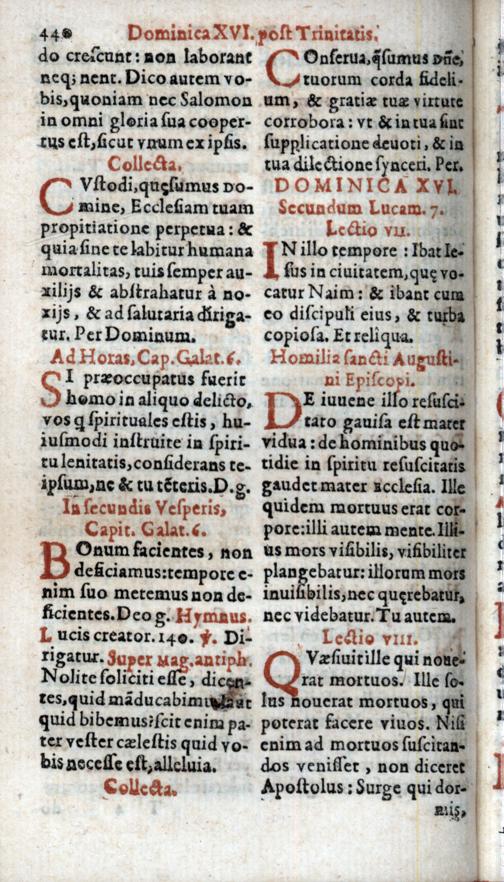 440 Dominica XVI. post Trinitatis.
do crescunt: non laborant
neq; nent. Dico autem vo-
bis, quoniam nec Salomon
in omni gloria sua cooper-
tus est, sicut vnum ex ipsis.
Collecta.
CVstodi, quęsumus Do-
mine, Ecclesiam tuam
propitiatione perpetua: &
quia sine te labitur humana
mortalitas, tuis semper au-
xilijs & abstrahatur à no-
xijs, & ad salutaria diriga-
tur. Per Dominum.
Ad Horas, Cap. Galat. 6.
SI præoccupatus fuerit
homo in aliquo delicto,
vos q spirituales estis, hu-
iusmodi instruite in spiri-
tu lenitatis, considerans te-
ipsum, ne & tu tẽteris. D. g.
In secundis Vesperis,
Capit. Galat. 6.
BOnum facientes, non
deficiamus: tempore e-
nim suo metemus non de-
ficientes. Deo g. Hymnus.
Lucis creator. 140. ℣. Di-
rigatur. Super Mag. antiph.
Nolite soliciti esse, dicen-
tes, quid mãducabimus aut
quid bibemus? scit enim pa-
ter vester cælestis quid vo-
bis necesse est, alleluia.
Collecta.
COnserua, q̃sumus Dñe,
tuorum corda fideli-
um, & gratiæ tuæ virtute
corrobora: vt & in tua sint
supplicatione deuoti, & in
tua dilectione synceri. Per.
DOMINICA XVI.
Secundum Lucam. 7.
Lectio VII.
IN illo tempore: Ibat Ie-
sus in ciuitatem, quę vo-
catur Naim: & ibant cum
eo discipuli eius, & turba
copiosa. Et reliqua.
Homilia sancti Augusti-
ni Episcopi.
DE iuuene illo resusci-
tato gauisa est mater
vidua: de hominibus quo-
tidie in spiritu resuscitatis
gaudet mater Ecclesia. Ille
quidem mortuus erat cor-
pore: illi autem mente. Illi-
us mors visibilis, visibiliter
plangebatur: illorum mors
inuisibilis, nec quęrebatur,
nec videbatur. Tu autem.
Lectio VIII.
QVæsiuit ille qui noue-
rat mortuos. Ille so-
lus nouerat mortuos, qui
poterat facere viuos. Nisi
enim ad mortuos suscitan-
dos venisset, non diceret
Apostolus: Surge qui dor-
mis,